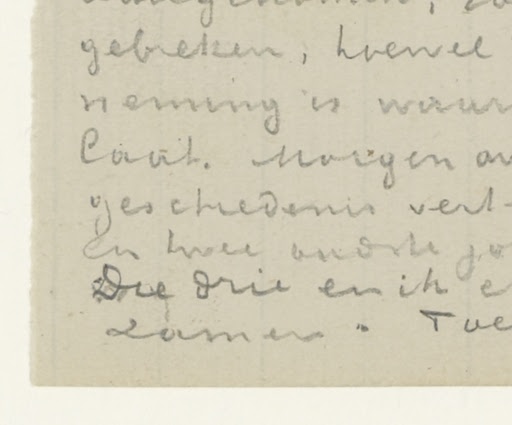 gebreken, hoewel
neming is waar
laat. Morgen
geschiedenis vert-
en twee oudste jo
Die drie en ik e
zamen. Toe